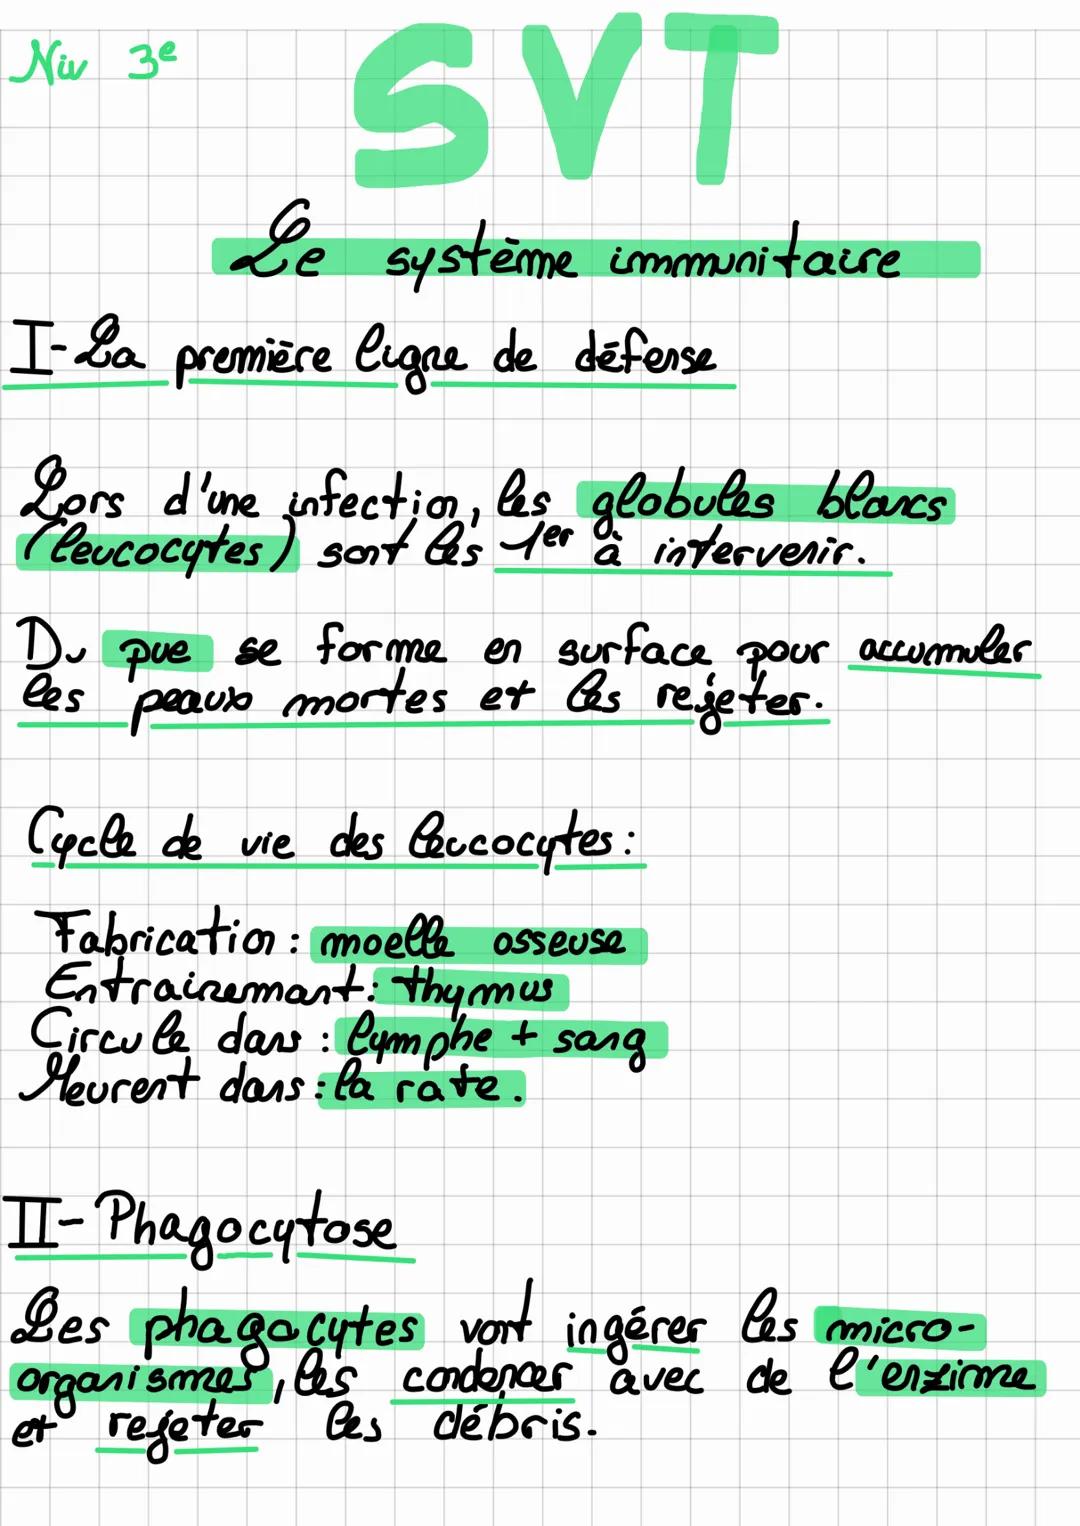 Niv 3e
SVT
Le système immunitaire
I-La première ligne de défense
Lors d'une infection, les globules blancs
(leucocytes) sont les 1er à intervenir.
Du pue se forme en surface pour accumuler
les peaux mortes et les rejeter.
Cycle de vie des leucocytes:
Fabrication: moelle osseuse
Entrainemant: thymus
Circule dans: lymphe + sang
Meurent dans: la rate.
II-Phagocytose
Les phagocytes vont ingérer les micro-
organismes, les condencer avec de l'enzime
et rejeter les débris.